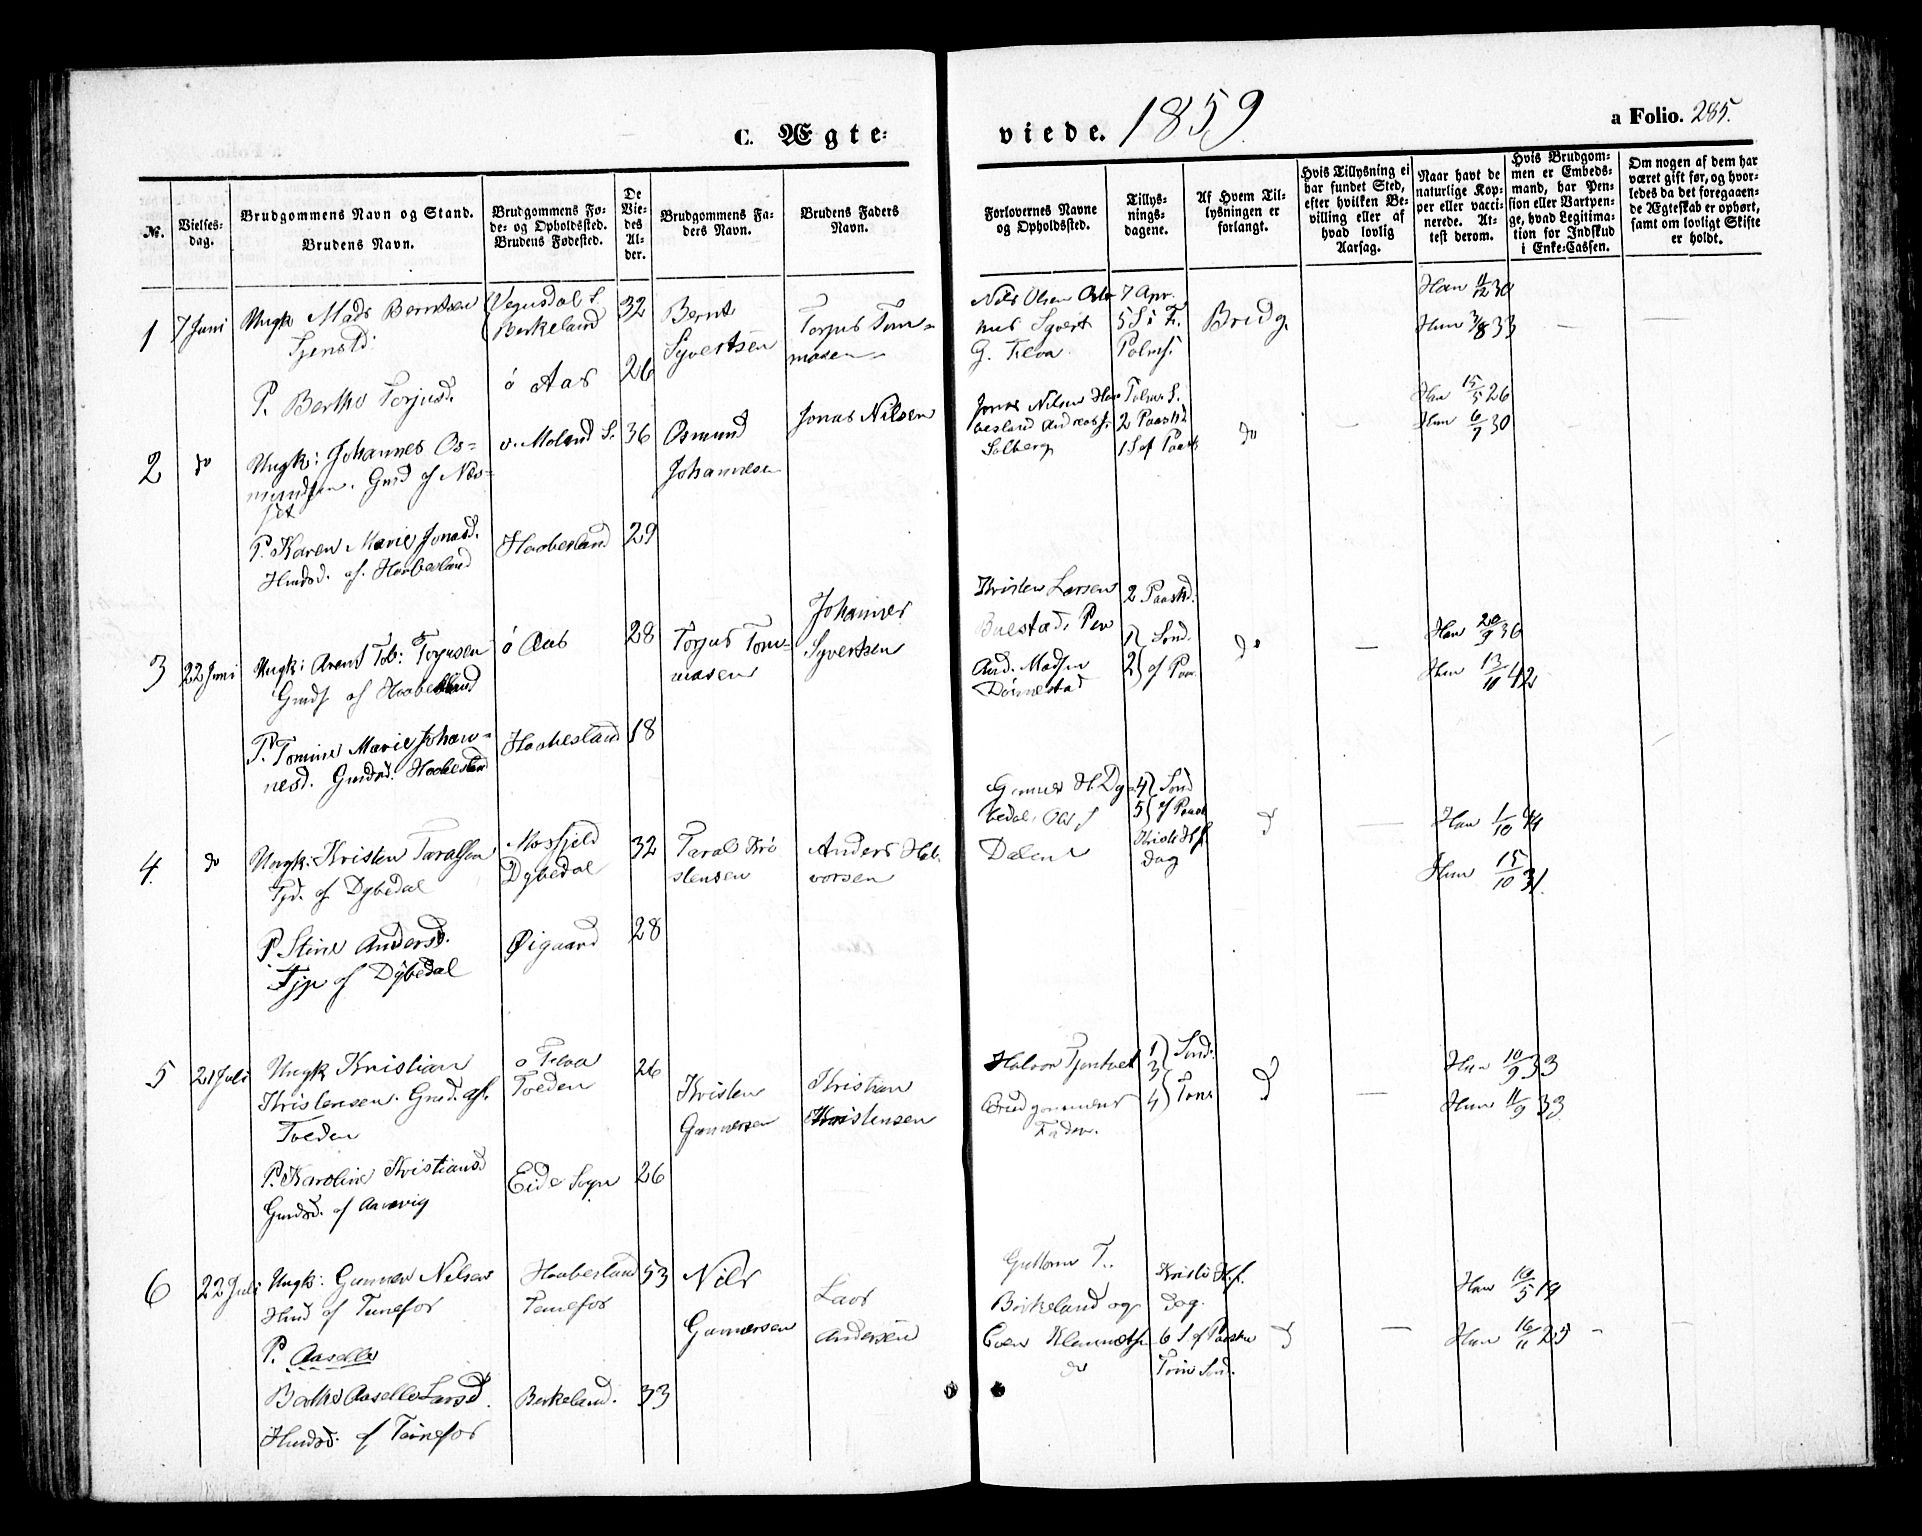 C. Ægte-
viede. 1859
a Folio. 285.
No.
Vielses-
dag.
Brudgommens Navn og Stand.
Brudens Navn.
Brudgommens Fø-
de- og Opholdssted.
Brudens Fødested.
De
Vie-
des
Al-
der.
Brudgommens Fa-
ders Navn.
Brudens Faders
Navn.
Forlovernes Navne
og Opholdssted.
Tillys-
nings-
dagene.
Af Hvem Til-
lysningen er
forlangt.
Hvis Tillysning ei
har fundet Sted,
efter hvilken Be-
villing eller af
hvad lovlig
Aarsag.
Naar havt de
naturlige Kop-
per eller vacci-
nerede. At-
test derom.
Hvis Brudgom-
men er Embeds-
mand, har Pen-
sion eller Vartpen-
ge, hvad Legitima-
tion for Indskud
i Enke-Cassen.
Om nogen af dem har
været gift før, og hvor-
ledes da det foregaaen-
de Ægteskab er ophørt,
samt om lovligt Skifte
er holdt.
1 7 Juni
Ungk Mads Berntsen
P. Berthe Torjusd.
Vegusdal S.
Birkeland
ö Aas
32
26
Bernt
Syvertsen
Torjus Tom-
masen
Nils Olsen
Syvert
G. Tlva
7 Apr.
5 S i F.
Palms.
Brudg.
Han 11/12 30
Hun 3/8 33
2 do
Ungk: Johannes Os-
mundsen. Gmd af Næs-
set
P. Karen Marie Jonasd.
Hmdsd. af. Haabesland
v. Moland S.
Haabesland
36
29
Osmund
Johannesen
Jonas Nilsen
Jonas Nilsen Haa-
besland Andreas J.
Solberg
Palms S.
2 Paaskd
1 S ef Paask
do
Han 15/5 26
Hun 6/7 30
3 22 Juni
Ungk: Arent Tob: Torjusen
Gmds af Haabesland
P. Tomine Marie Johan-
nesd. Gmdsd. Haabesland
ö Aas
Haabesland
28
18
Torjus Tom-
masen
Johannes
Syvertsen
Kristen Larsen
Buestad, Per
And. Madsen
Dønnestad
2 Paaskd.
1) Sønd.
2) ef Paa
do
Han 20/9 36
Hun 13/10 42
4. do
Ungk: Kristen Taralsen
Tjd. af Dybedal
P Stine Andersd.
Tjp af Dybedal
Mosfjeld
Dybedal
Øigaard
32
28
Taral Kri-
stensen
Anders Hal-
vorsen
Gunner H. Dy-
bedal, Ole J
Dalene
4) Sønd
5) ef Paask
Kristi Hf.
dag
d
Han 1/10 44
Hun 15/10 31.
5 21 Juli
Ungk Kristian
Kristensen. Gmd. af.
Tveden
P. Karoline Kristiansd
Gmdsd. af Aamvig
o Tlva
Tveden
Eide Sogn
26
26
Kristen
Gunnersen
Kristian
Kristensen
Halvor Tjentvet
Brudgommens
Fader.
1) Sønd.
3
4) Trin
d
Han 10/9 33
Hun 11/9 33
6 22 Juli
Ungk: Gunner Nilsen
Hmd af Tenefos
P. Aaselle
Berthe Aaselle Larsd.
Hmdsd. af Tenefos
Haabesland
Tenefos
Birkeland.
53
33
Nils
Gunnersen
Lars
Andersen
Guttorm T.
Birkeland og
Even Klemmetsen
do
Kristi H.f.
dag.
6 S ef Paaske
Trin Sønd.
d
Han 10/5 19
Hun 16/11 25